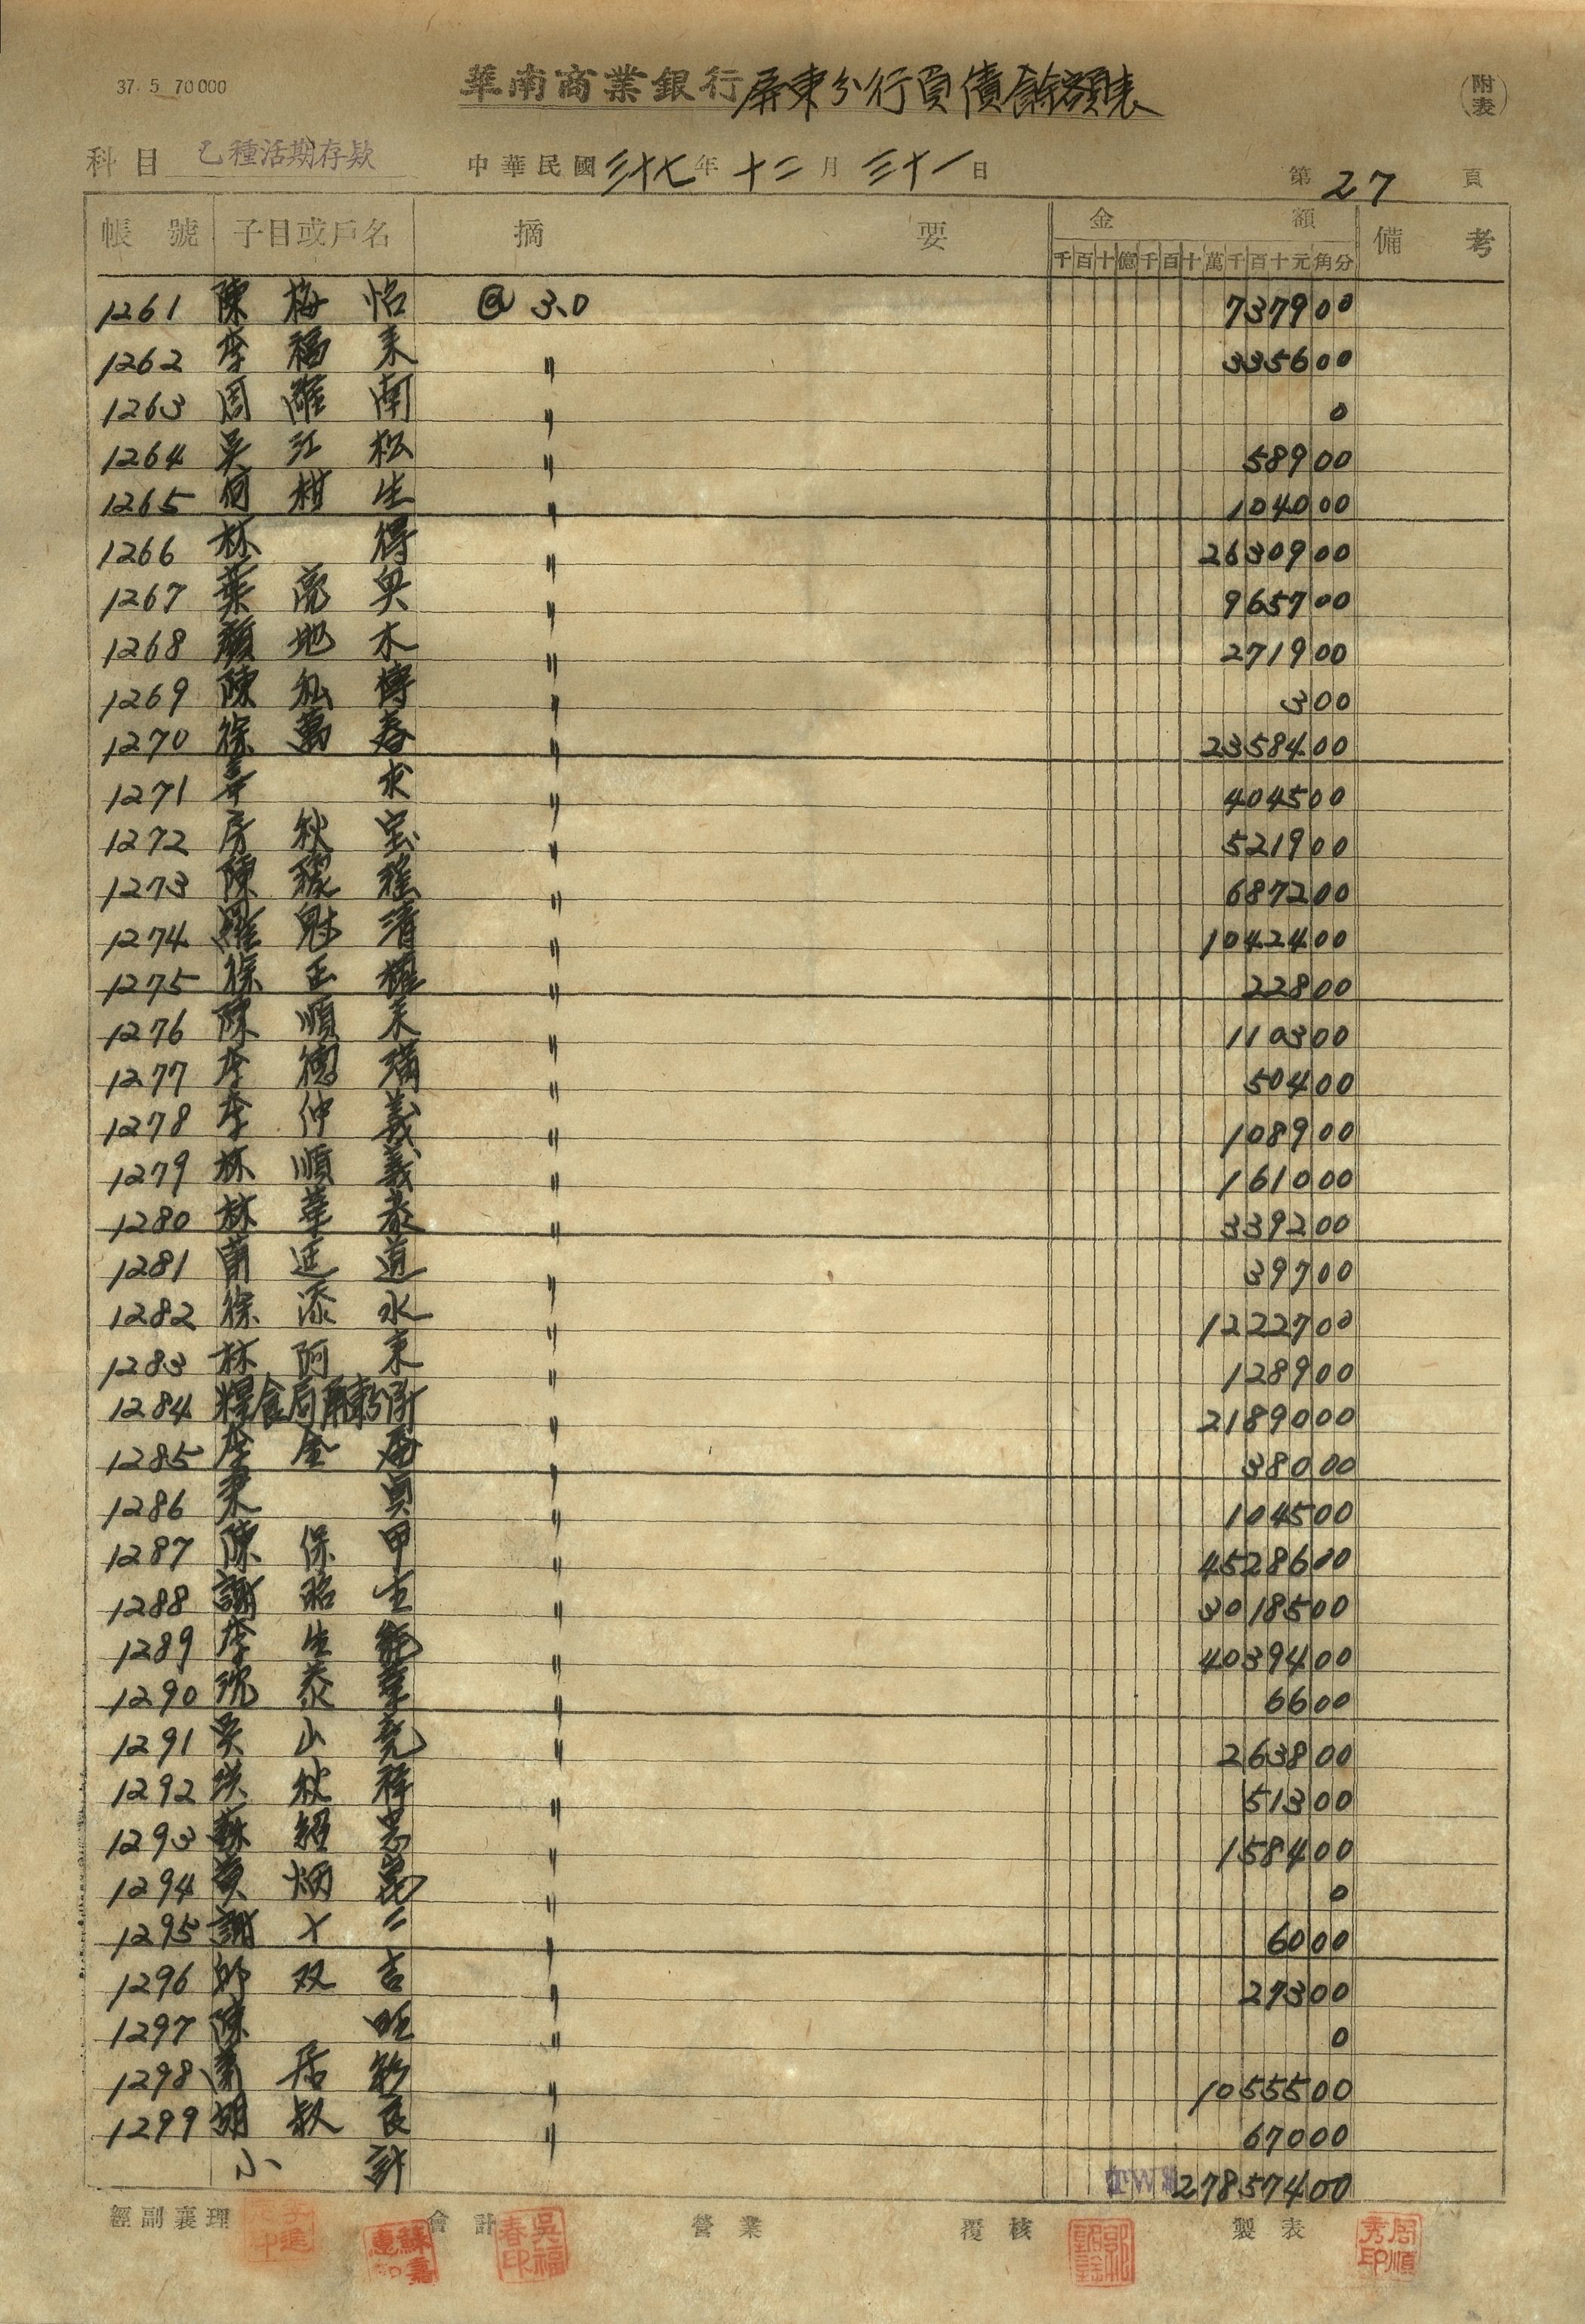 37. 5. 70000
華南商業銀行屏東分行負債餘額表
(附表)
科目 乙種活期存款 中華民國三十七年十二月三十一日 第27頁
帳號 子目或戶名 摘要 金額 備考
千百十億千百十萬千百十元角分
1261 陳梅怡 @ 3.0 737900
1262 李福来 〃 335600
1263 周 南 〃 0
1264 吳江松 〃 58900
1265 何柑生 〃 104000
1266 林得 〃 2630900
1267 葉亮 〃 965700
1268 顏地木 〃 271900
1269 陳 〃 300
1270 徐萬春 〃 2358400
1271 〃 404500
1272 房秋宝 〃 521900
1273 陳 〃 687200
1274 羅魁清 〃 1042400
1275 徐正耀 〃 22800
1276 陳順来 〃 110300
1277 李德 〃 50400
1278 李仲義 〃 108900
1279 林順義 〃 161000
1280 林華泰 〃 339200
1281 廷道 〃 39700
1282 徐添水 〃 1222700
1283 林阿東 〃 128900
1284 糧食局屏東分所 〃 2189000
1285 李金 〃 38000
1286 〃 104500
1287 陳保甲 〃 4528600
1288 謝昭 〃 3018500
1289 李生 〃 4039400
1290 沈泰華 〃 6600
1291 吳山 〃 263800
1292 洪秋祥 〃 51300
1293 蘇經忠 〃 158400
1294 黃炳崑 〃 0
1295 謝十二 〃 6000
1296 双吉 〃 27300
1297 陳旺 〃 0
1298 居 〃 1055500
1299 胡叔良 〃 67000
小計 27857400
經副襄理 會計 營業 覆核 製表
吳福春印
周順秀印